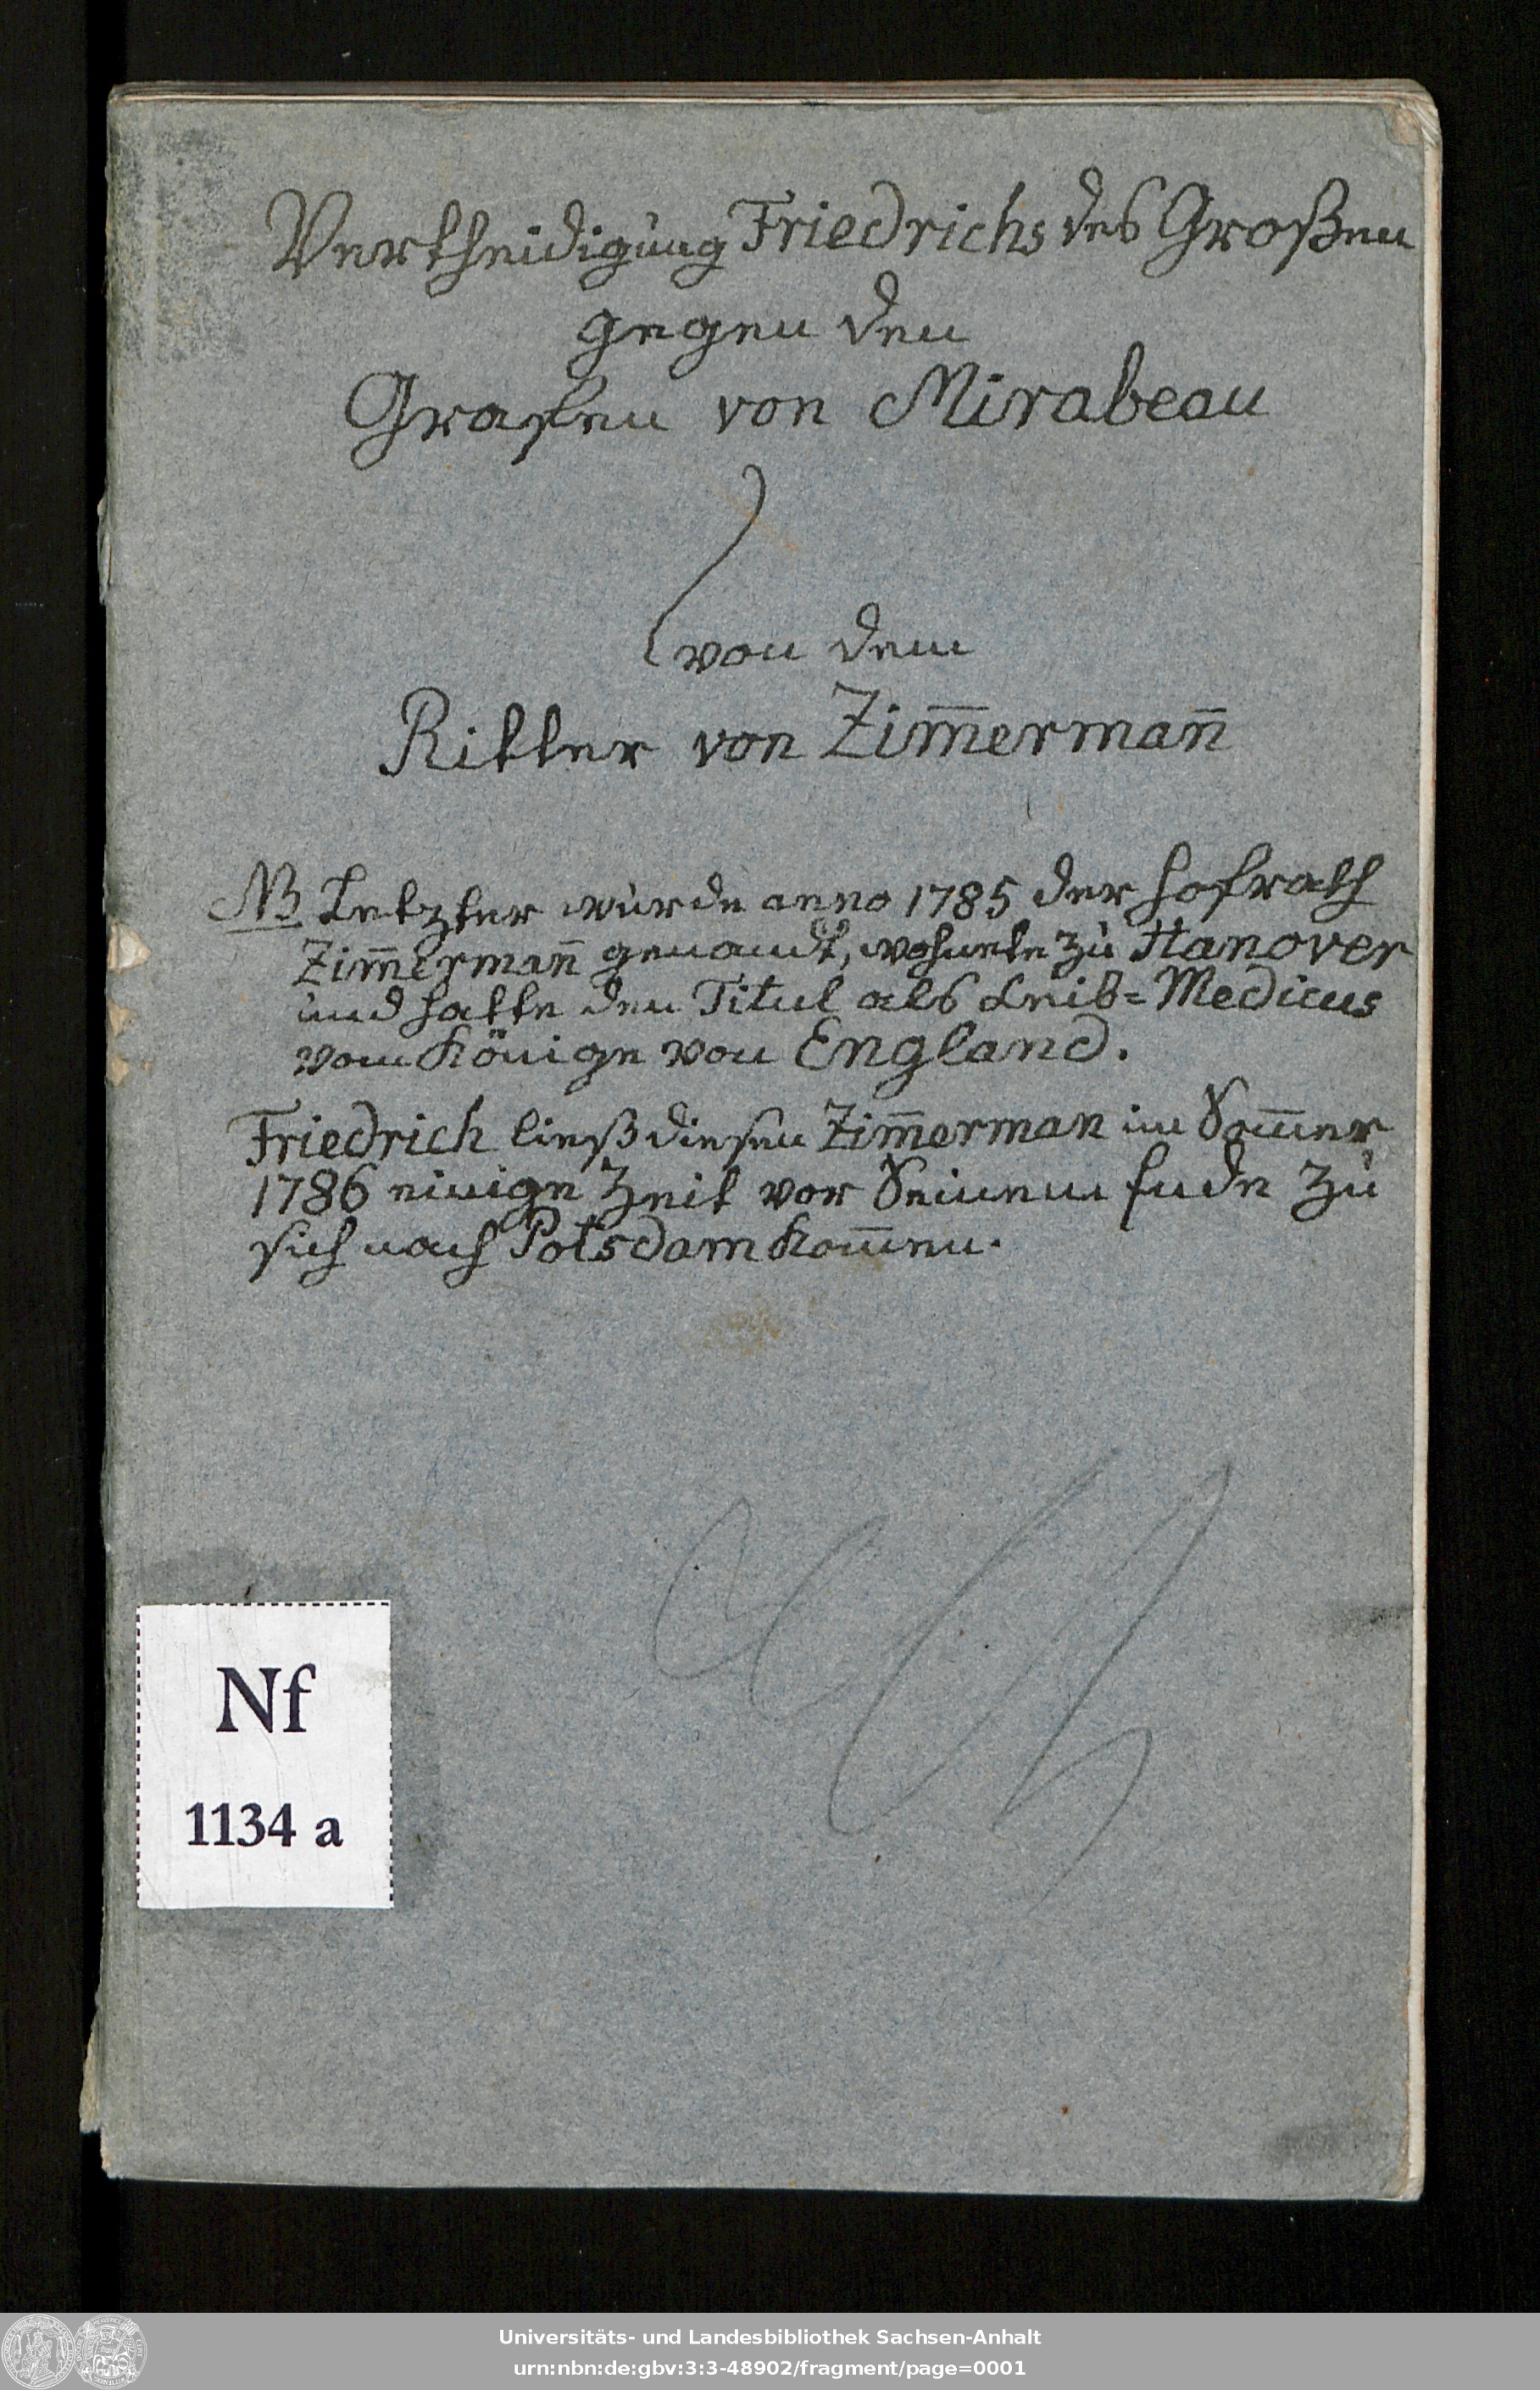 Vertheidigung Friedrichs des Großen
gegen den
Grafen von Mirabeau
von dem
Ritter von Zim̅erman̅
NB Letzter wurde anno 1785 der Hofrath
Zim̅erman̅ genandt, wohnete zu Hanover
und hatte den Titul als Leib=Medicus
vom Könige von England.
Friedrich ließ diesen Zim̅erman im Som̅er
1786 einige Zeit vor Seinem Ende zu
sich nach Potsdam kom̅en.
Nf
1134 a
Universitäts- und Landesbibliothek Sachsen-Anhalt
urn:nbn:de:gbv:3:3-48902/fragment/page=0001